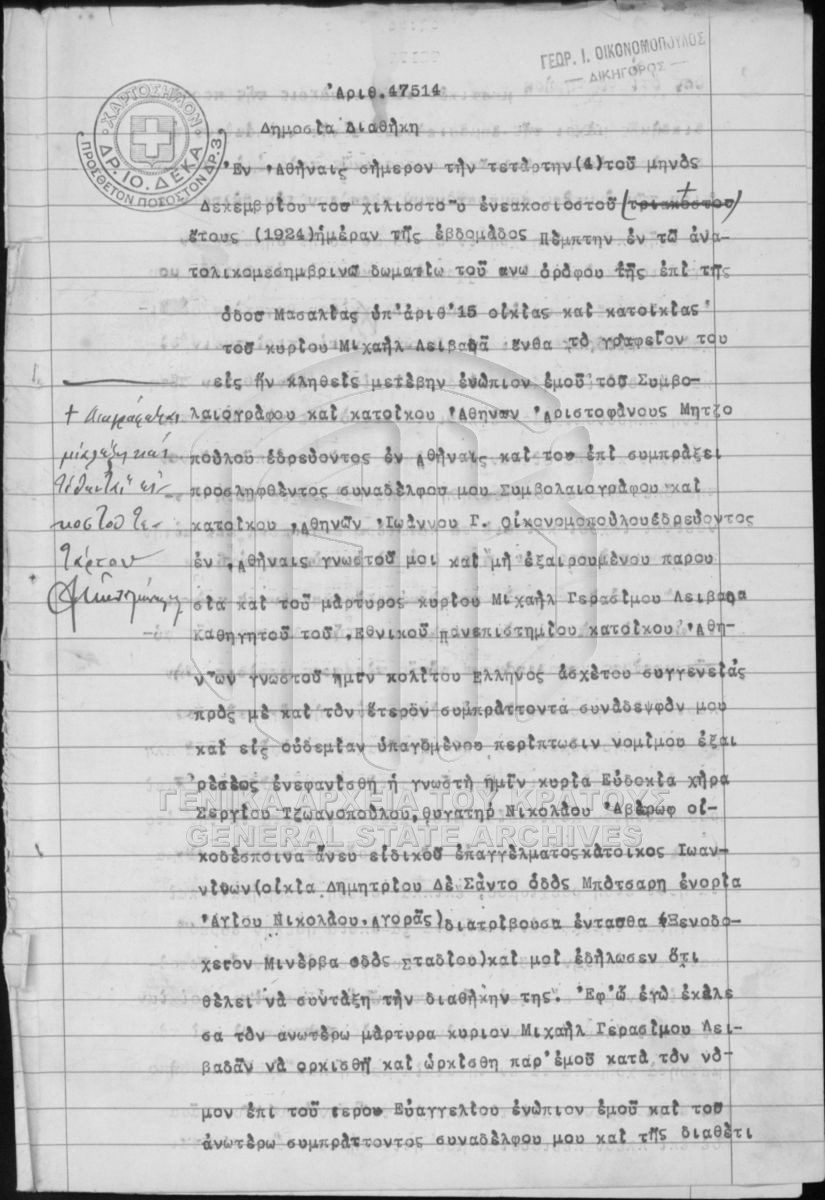 ΓΕΩΡ. Ι. ΟΙΚΟΝΟΜΟΠΟΥΛΟΣ
— ΔΙΚΗΓΟΡΟΣ —
Ἀριθ.47514
ΧΑΡΤΟΣΗΜΟΝ
ΔΡ. 10. ΔΕΚΑ
ΠΡΟΣΘΕΤΟΝ ΠΟΣΟΣΤΟΝ ΔΡ.3.
Δημοσία Διαθήκη
Ἐν Ἀθήναις σήμερον τήν τετάρτην(4)τοῦ μηνός
Δεκεμβρίου του χιλιοστοῦ ἐνεακοσιοστοῦ (τριακοστου)
ἔτους (1924)ἡμέραν τῆς ἑβδομάδος Πέμπτην ἐν τῶ ἀνα-
τολικομεσημβρινῶ δωματίω τοῦ ανω ὀρόφου τῆς ἐπί τῆς
ὁδου Μασαλίας ὑπ'ἀριθ'15 οἰκίας καί κατοικίας
του κυρίου Μιχαήλ Λειβαδᾶ ενθα τό γραφεῖον του
εἰς ἥν κληθείς μετέβην ἐνώπιον ἐμοῦ τοῦ Συμβο-
λαιογράφου καί κατοίκου Ἀθηνων Ἀριστοφάνους Μητζο
πούλου ἑδρεύοντος ἐν Ἀθήναις καί του ἐπί συμπράξει
προσληφθέντος συναδέλφου μου Συμβολαιογράφου καί
κατοίκου Ἀθηνῶν Ἰωάννου Γ. Οἰκονομοπούλουἑδρεύοντος
ἐν Ἀθήναις γνωστοῦ μοι καί μή ἐξαιρουμένου παρου
σία καί τοῦ μάρτυρος κυρίου Μιχαήλ Γερασίμου Λειβαδα
Καθηγητοῦ τοῦ Ἐθνικοῦ Πανεπιστημίου κατοίκου Ἀθη-
νῶν γνωστοῦ ημῖν κολίτου Ελληνος ἀσχέτου συγγενείας
πρός μέ καί τόν ἕτερόν συμπράττοντα συνάδεψφόν μου
καί εἰς οὐδεμίαν ὑπαγομένου περίπτωσιν νομίμου ἐξαι
ρέσεως ἐνεφανίσθη ἡ γνωστή ημῖν κυρία Εὐδοκία χήρα
Σεργίου Τζωανοπούλου,θυγατηρ Νικολάου Ἀβέρωφ οἰ-
κοδέσποινα ἄνευ εἰδικοῦ ἐπαγγέλματος κάτοικος Ιωαν-
νίνων(οἰκία Δημητρίου Δέ Σάντο ὁδός Μπότσαρη ἐνορία
Ἁγίου Νικολάου.Αγορᾶς)διατρίβουσα ἐνταυθα (Ξενοδο-
χεῖον Μινέρβα οδός Σταδίου)καί μοί ἐδήλωσεν ὅτι
θέλει νά συντάξη τήν διαθήκην της. Ἐφ'ῶ ἐγώ ἐκάλε
σα τόν ανωτέρω μάρτυρα κυριον Μιχαήλ Γερασίμου Λει-
βαδᾶν νά ορκισθῆ καί ὡρκίσθη παρ'ἐμοῦ κατά τόν νό-
μον ἐπί τοῦ ιερου Εὐαγγελίου ἐνώπιον ἐμοῦ καί τοῦ
ἀνωτέρω συμπράττοντος συναδέλφου μου καί τῆς διαθέτι
+ Διαγράφεται
μία λέξις καί
τίθεται εἰ-
κοστοῦ τε-
τάρτου
ΓΕΝΙΚΑ ΑΡΧΕΙΑ ΤΟΥ ΚΡΑΤΟΥΣ
GENERAL STATE ARCHIVES